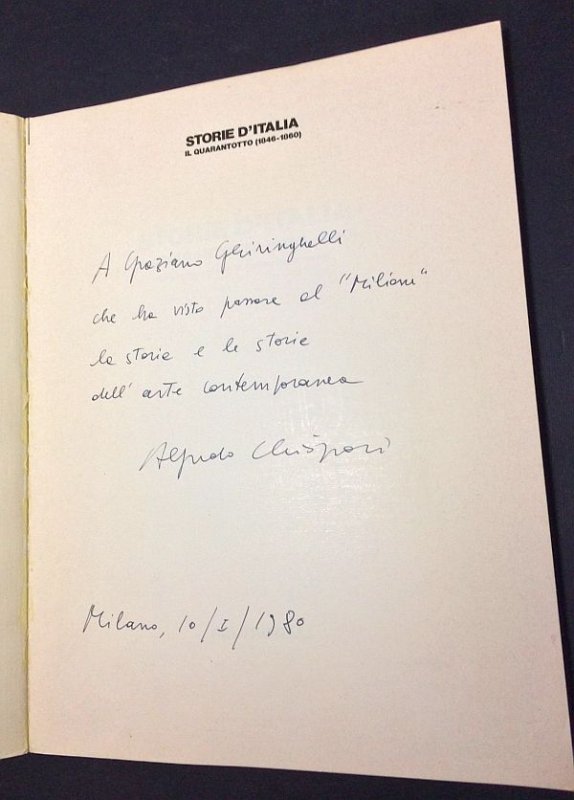 STORIE D'ITALIA
IL QUARANTOTTO (1846-1860)
A Graziano Ghiringhelli
che ha visto passare al "Milione"
la storia e le storie
dell' arte contemporanea
Alfredo Chiàppori
Milano, 10/I/1980